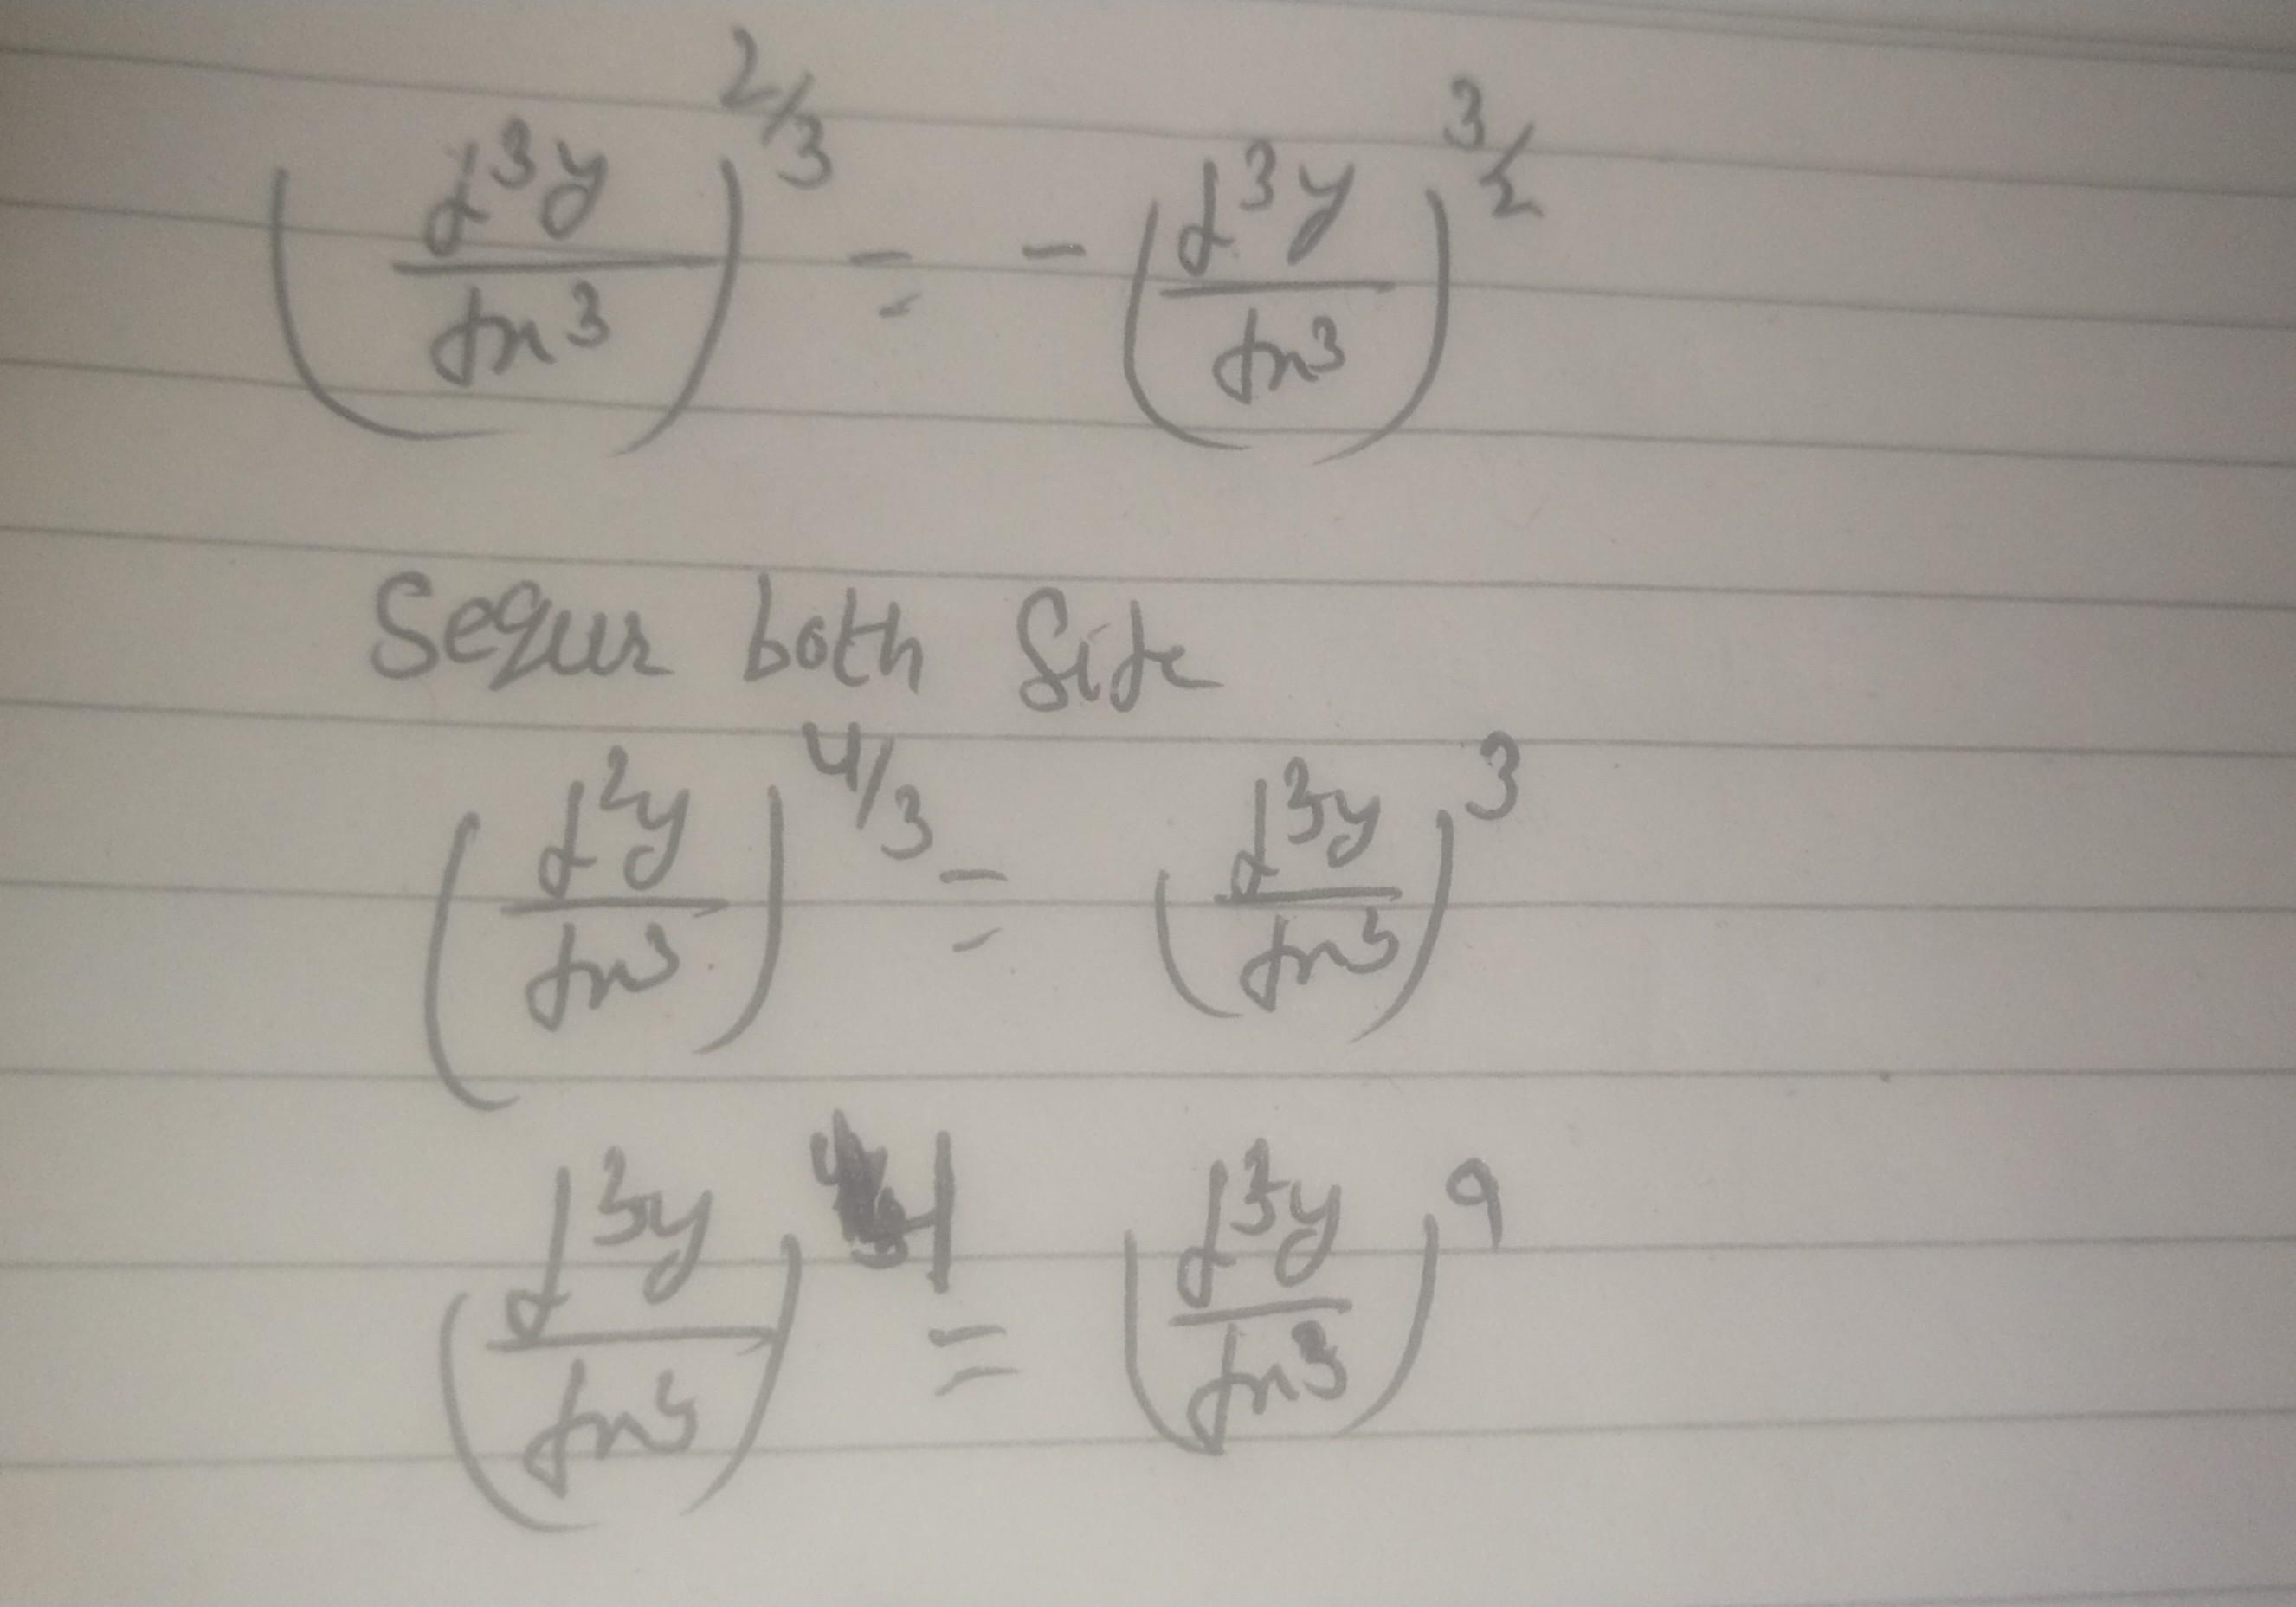 (d³y/dx³)^2/3 = -(d³y/dx³)^3/2
Sequr both Side
(d²y/dx³)^4/3 = (d³y/dx³)^3
(d³y/dx³)^4 = (d³y/dx³)^9